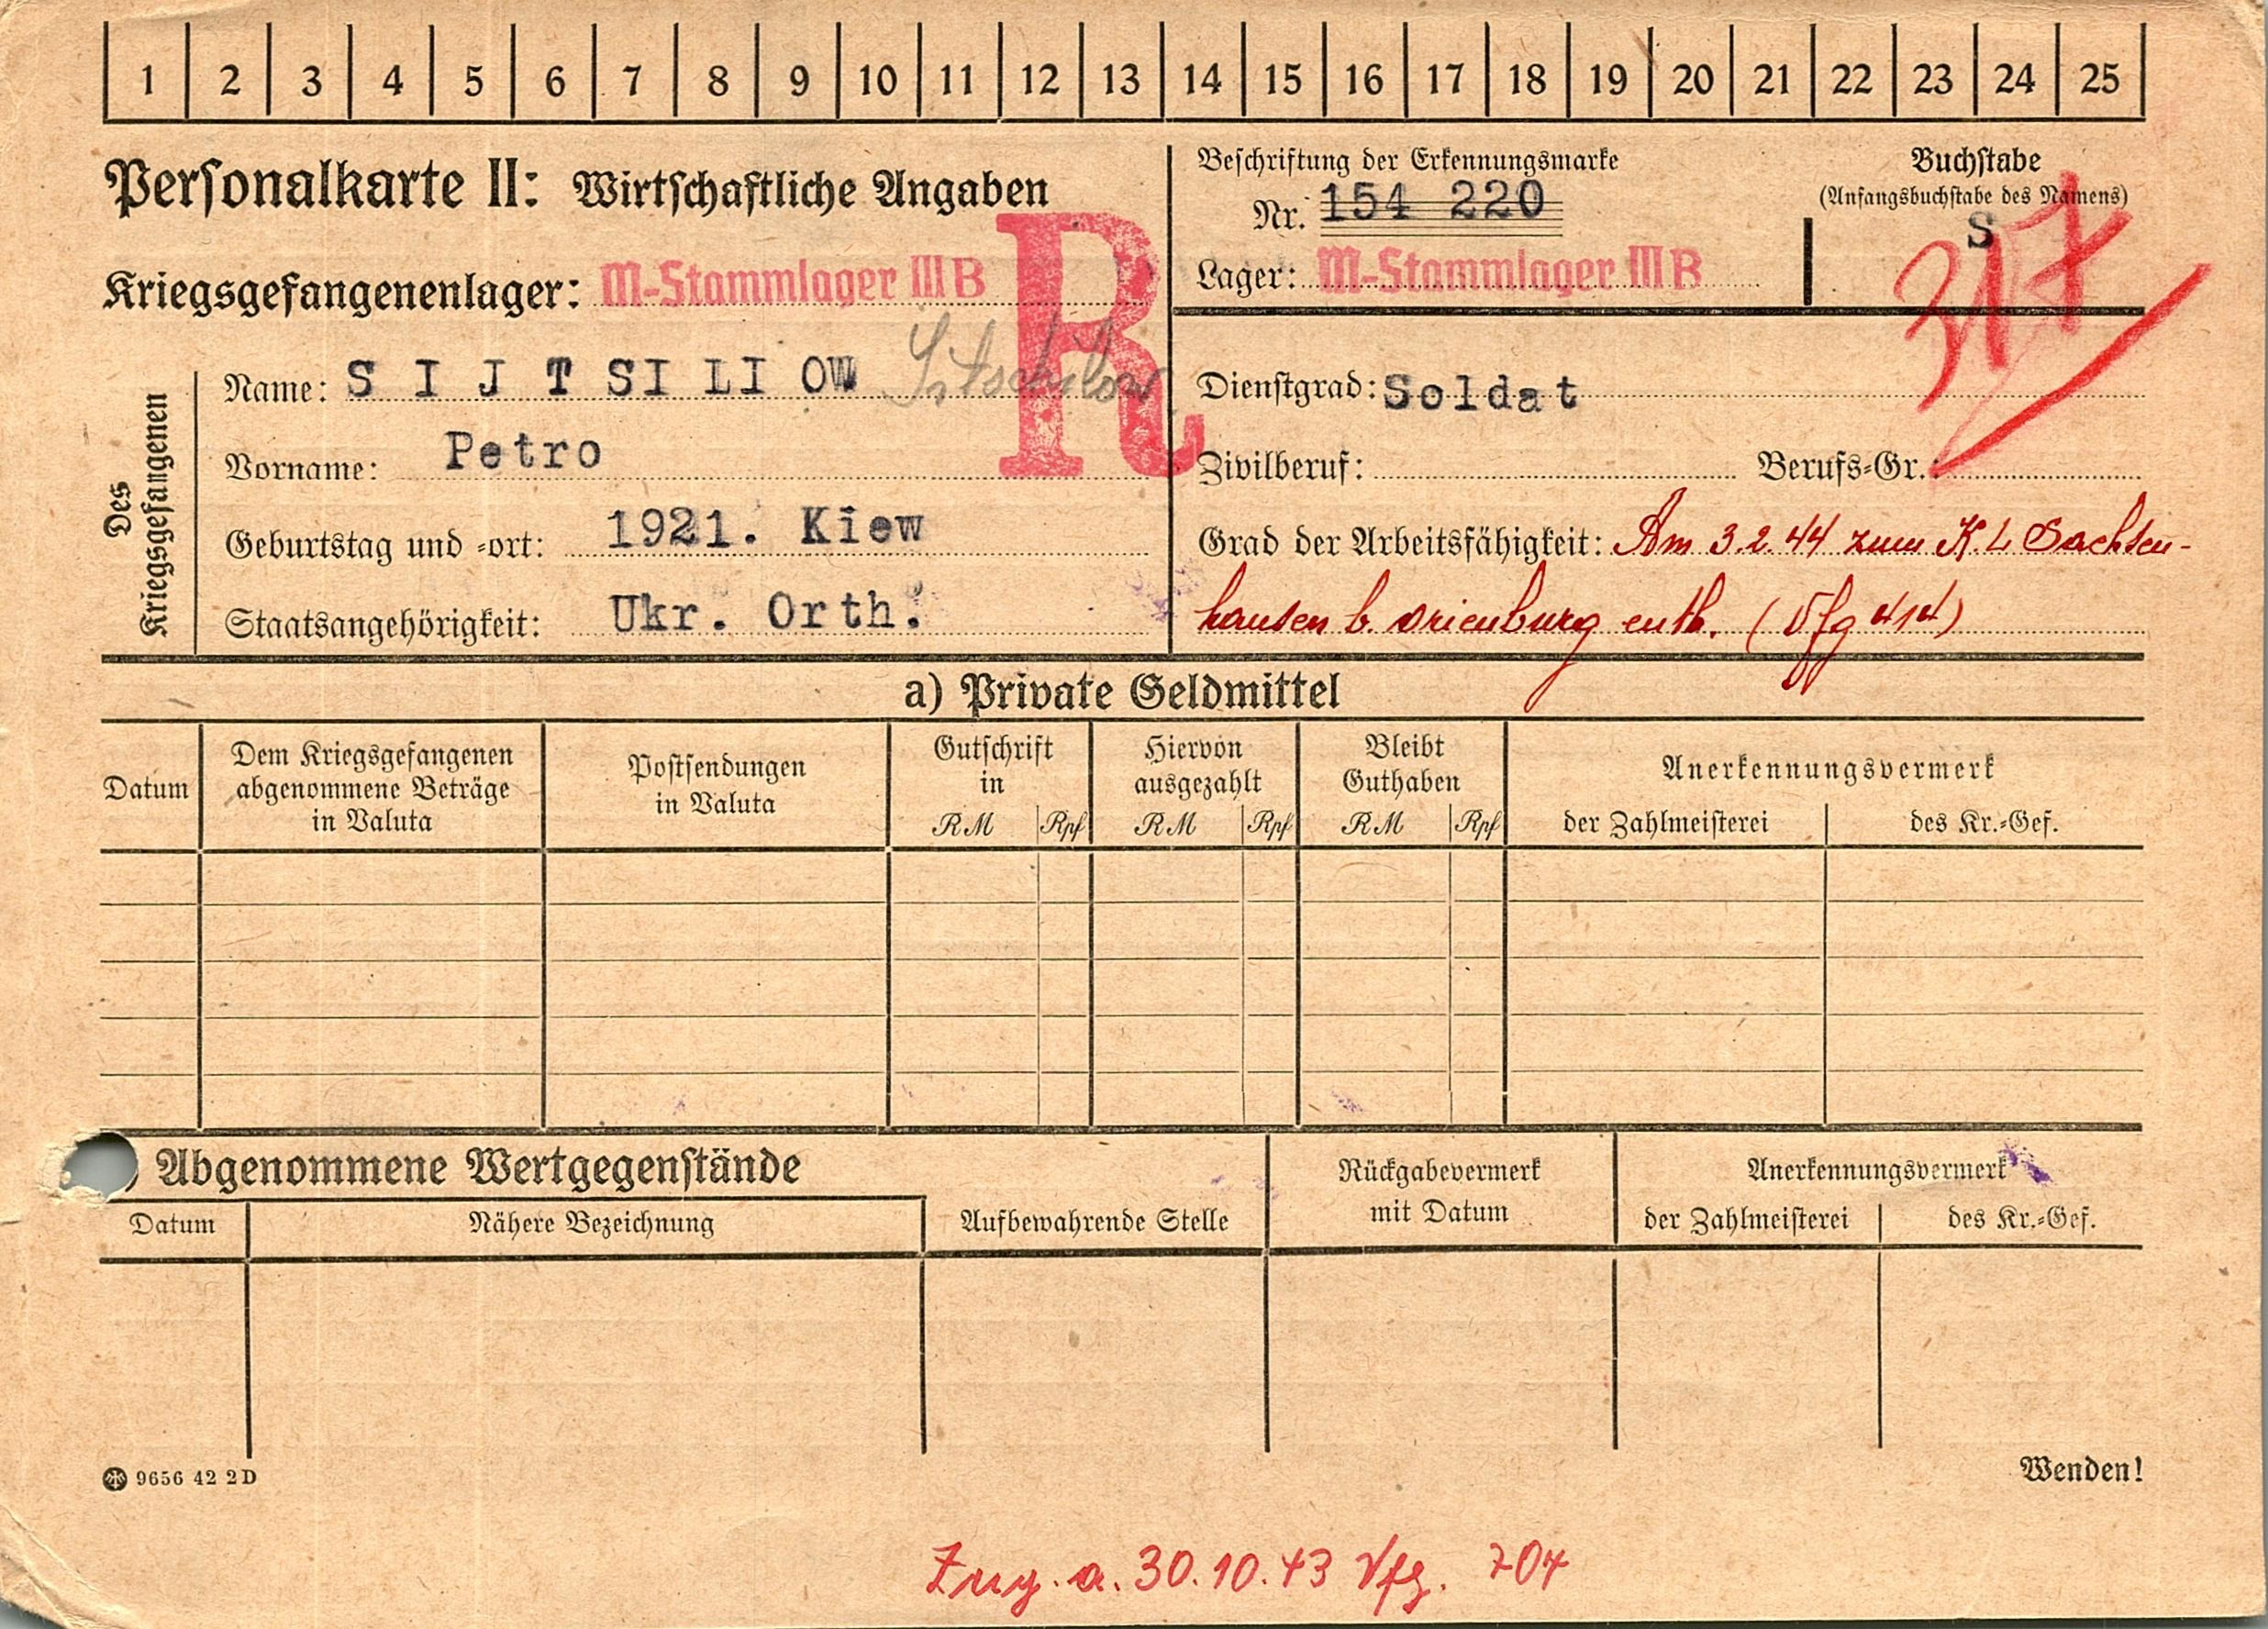 1 2 3 4 5 6 7 8 9 10 11 12 13 14 15 16 17 18 19 20 21 22 23 24 25
Personalkarte II: Wirtschaftliche Angaben
Kriegsgefangenenlager: M-Stammlager III B
R
Beschriftung der Erkennungsmarke
Nr. 154 220
Lager: M-Stammlager III B
Buchstabe
(Anfangsbuchstabe des Namens)
S
Des Kriegsgefangenen
Name: S I J T SI LI OW
Vorname: Petro
Geburtstag und -ort: 1921. Kiew
Staatsangehörigkeit: Ukr. Orth.
Dienstgrad: Soldat
Zivilberuf: Berufs-Gr.:
Grad der Arbeitsfähigkeit: Am 3.2.44 zum K. L Sachsen-
hausen b. Orienburg entl. (Vfg 414)
a) Private Geldmittel
Datum
Dem Kriegsgefangenen
abgenommene Beträge
in Valuta
Postsendungen
in Valuta
Gutschrift
in
RM Rpf
Hiervon
ausgezahlt
RM Rpf
Bleibt
Guthaben
RM Rpf
Anerkennungsvermerk
der Zahlmeisterei des Kr.-Gef.
) Abgenommene Wertgegenstände
Datum Nähere Bezeichnung
Aufbewahrende Stelle
Rückgabevermerk
mit Datum
Anerkennungsvermerk
der Zahlmeisterei des Kr.-Gef.
9656 42 2D
Wenden!
Zug. a. 30.10.43 Vfg. 704